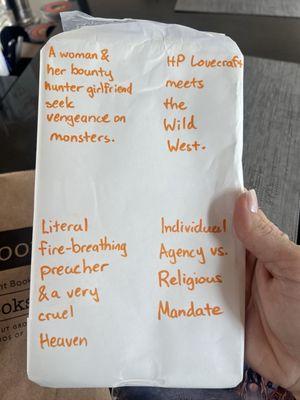 A woman &
her bounty
hunter girlfriend
seek
vengeance on
monsters.
HP Lovecraft
meets
the
Wild
West.
Literal
fire-breathing
preacher
& a very
cruel
Heaven
Individual
Agency vs.
Religious
Mandate